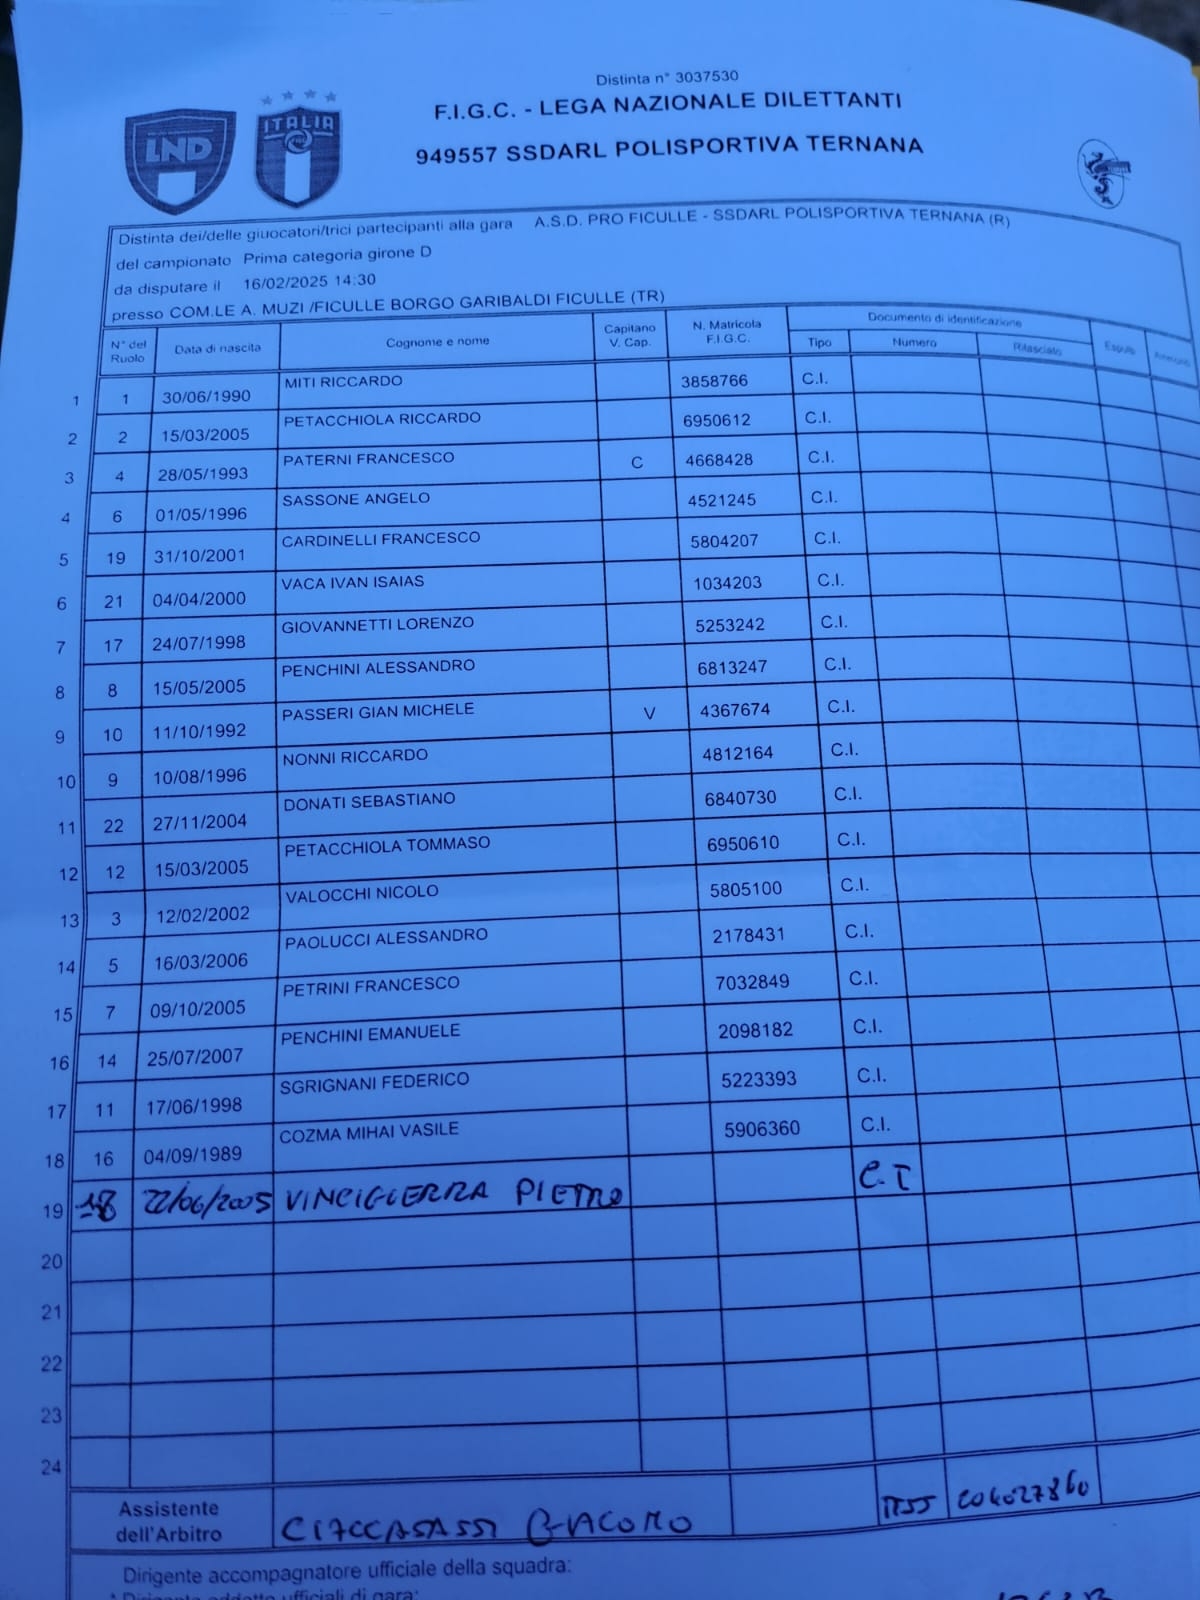 Distinta n° 3037530
F.I.G.C. - LEGA NAZIONALE DILETTANTI
949557 SSDARL POLISPORTIVA TERNANA
LND
ITALIA
Distinta dei/delle giuocatori/trici partecipanti alla gara A.S.D. PRO FICULLE - SSDARL POLISPORTIVA TERNANA (R)
del campionato Prima categoria girone D
da disputare il 16/02/2025 14:30
presso COM.LE A. MUZI /FICULLE BORGO GARIBALDI FICULLE (TR)
N° del Ruolo Data di nascita Cognome e nome Capitano V. Cap. N. Matricola F.I.G.C. Documento di identificazione
Tipo Numero Rilasciato Espulo
1 1 30/06/1990 MITI RICCARDO 3858766 C.I.
2 2 15/03/2005 PETACCHIOLA RICCARDO 6950612 C.I.
3 4 28/05/1993 PATERNI FRANCESCO C 4668428 C.I.
4 6 01/05/1996 SASSONE ANGELO 4521245 C.I.
5 19 31/10/2001 CARDINELLI FRANCESCO 5804207 C.I.
6 21 04/04/2000 VACA IVAN ISAIAS 1034203 C.I.
7 17 24/07/1998 GIOVANNETTI LORENZO 5253242 C.I.
8 8 15/05/2005 PENCHINI ALESSANDRO 6813247 C.I.
9 10 11/10/1992 PASSERI GIAN MICHELE V 4367674 C.I.
10 9 10/08/1996 NONNI RICCARDO 4812164 C.I.
11 22 27/11/2004 DONATI SEBASTIANO 6840730 C.I.
12 12 15/03/2005 PETACCHIOLA TOMMASO 6950610 C.I.
13 3 12/02/2002 VALOCCHI NICOLO 5805100 C.I.
14 5 16/03/2006 PAOLUCCI ALESSANDRO 2178431 C.I.
15 7 09/10/2005 PETRINI FRANCESCO 7032849 C.I.
16 14 25/07/2007 PENCHINI EMANUELE 2098182 C.I.
17 11 17/06/1998 SGRIGNANI FEDERICO 5223393 C.I.
18 16 04/09/1989 COZMA MIHAI VASILE 5906360 C.I.
19 18 22/06/2005 VINCIGUERRA PIETRO C.I
20
21
22
23
24
Assistente dell'Arbitro CIACCASASSI GIACOMO TESS
Dirigente accompagnatore ufficiale della squadra:
* Dirigente addetto ufficiali di gara: